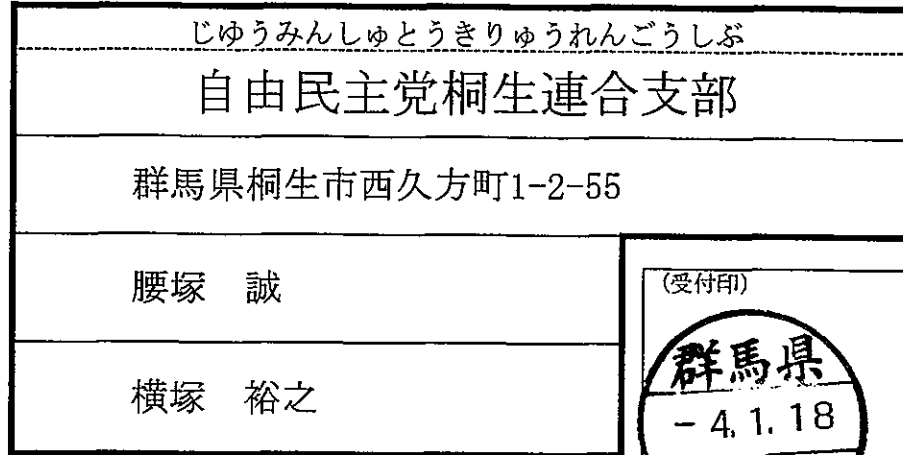 じゆうみんしゅとうきりゅうれんごうしぶ
自由民主党桐生連合支部
群馬県桐生市西久方町1-2-55
腰塚　誠
(受付印)
群馬県
横塚　裕之
-4.1.18